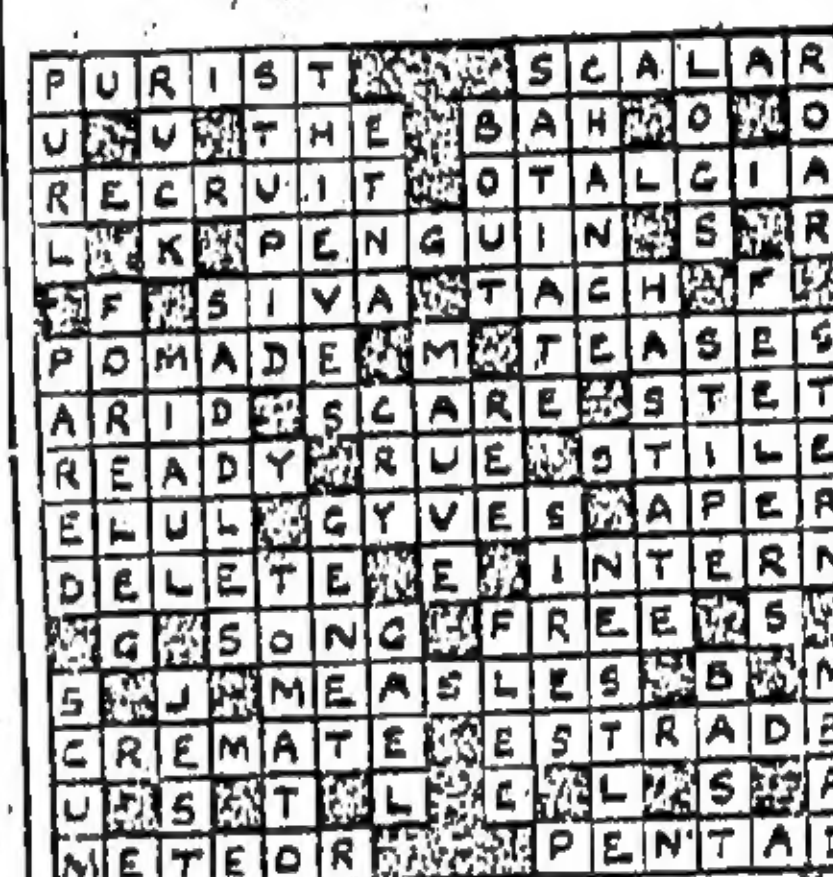 PURIST SCALAR
U U THE BAH O O
RECRUIT OTALGIA
L K PENGUIN S R
F SIVA TACH F
POMADE M TEASES
ARID SCARE STET
READY RUE STILE
ELUL GYVES APER
DELETE E INTERN
G SONG FREE S
S J MEASLES B N
CREMATE ESTRADE
U S T L C L S A
METEOR PENTAD